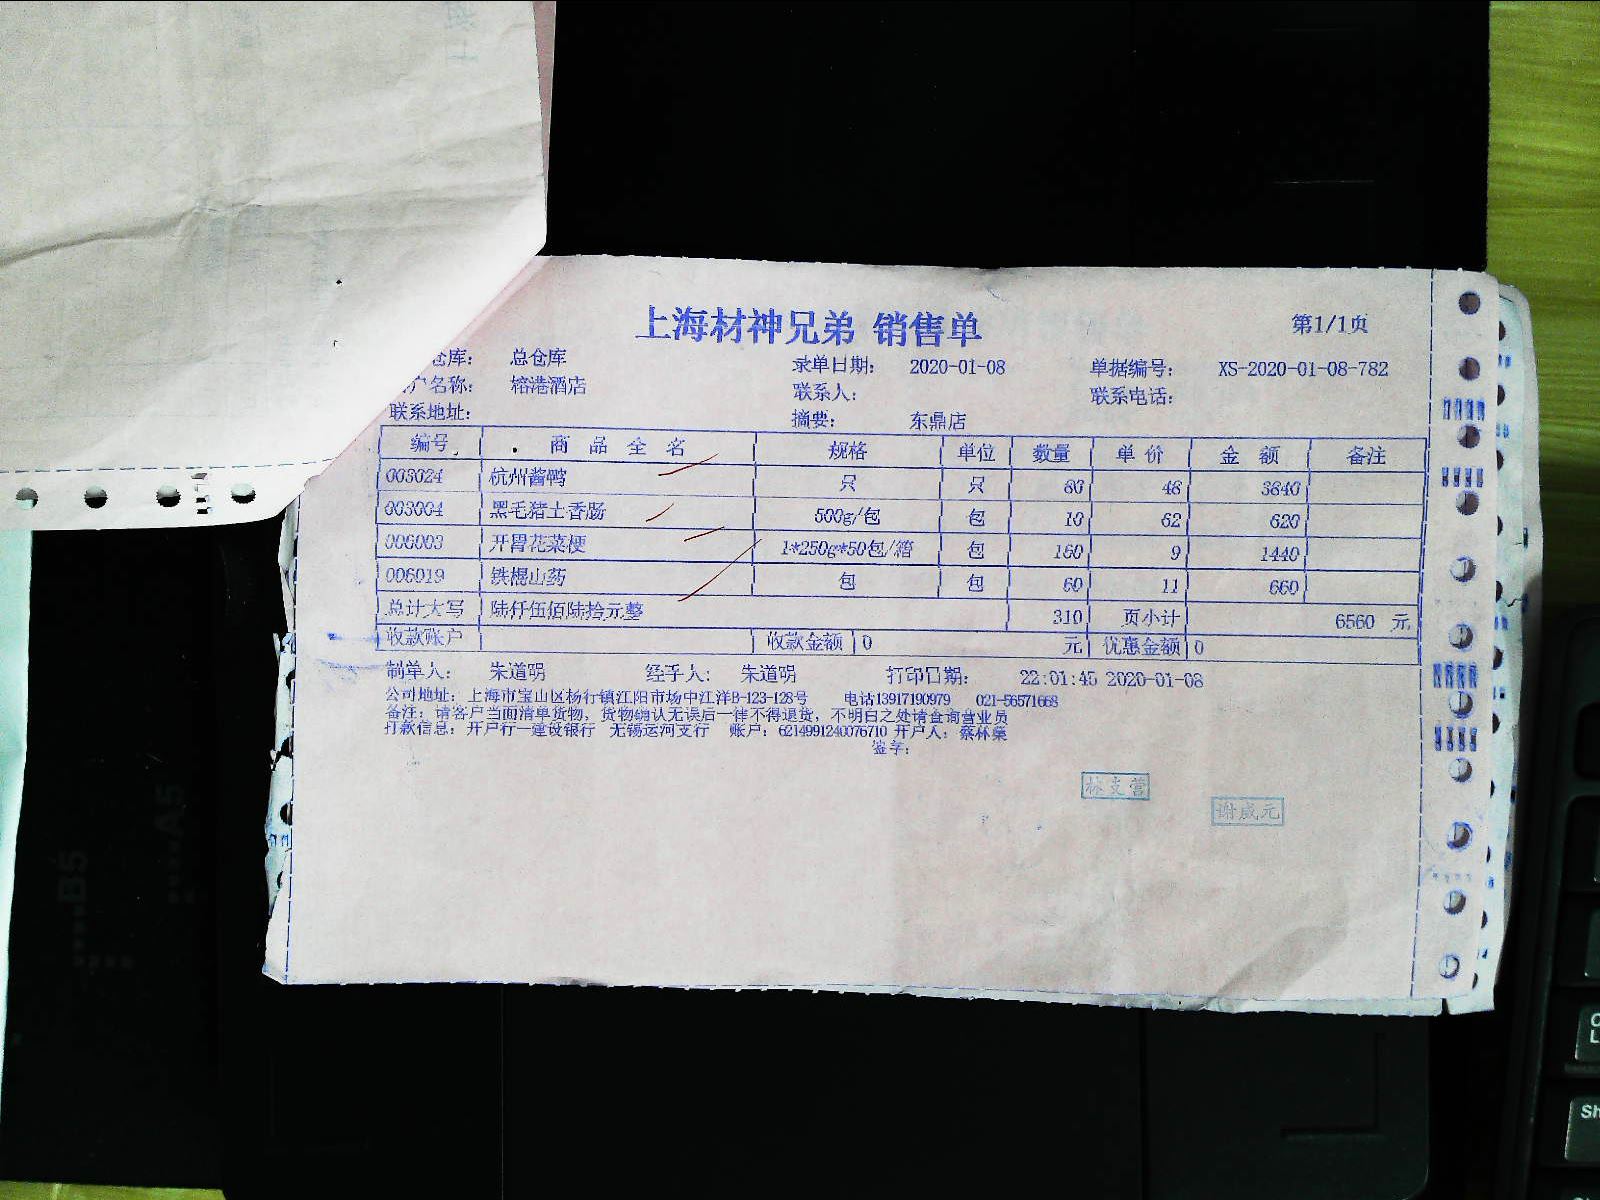 上海材神兄弟 销售单
第1/1页
仓库： 总仓库 录单日期： 2020-01-08 单据编号： XS-2020-01-08-782
户名称： 榕港酒店 联系人： 联系电话：
联系地址： 摘要： 东鼎店
编号 商品全名 规格 单位 数量 单价 金额 备注
003024 杭州酱鸭 只 只 80 48 3840
003004 黑毛猪土香肠 500g/包 包 10 62 620
006003 开胃花菜梗 1*250g*50包/箱 包 160 9 1440
006019 铁棍山药 包 包 60 11 660
总计大写 陆仟伍佰陆拾元整 310 页小计 6560 元
收款账户 收款金额 0 元 优惠金额 0
制单人： 朱道明 经手人： 朱道明 打印日期： 22:01:45 2020-01-08
公司地址：上海市宝山区杨行镇江阳市场中江洋B-123-128号 电话13917190979 021-56571668
备注：请客户当面清单货物，货物确认无误后一律不得退货，不明白之处请查询营业员
打款信息：开户行一建设银行 无锡运河支行 账户：6214991240076710 开户人：蔡林燊
签字：
林支营
谢咸元
B5
A5
Sh